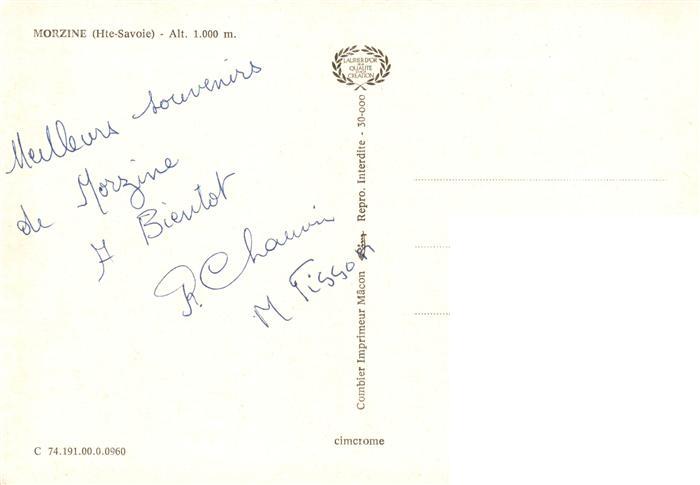 MORZINE (Hte-Savoie) - Alt. 1.000 m.
LAURIER D'OR
QUALITÉ
CRÉATION
Meilleurs souvenirs
de Morzine
A Bientot
R. Chauvin
M Tisso
Combier Imprimeur Mâcon Repro. Interdite - 30-000
cimcrome
C 74.191.00.0.0960